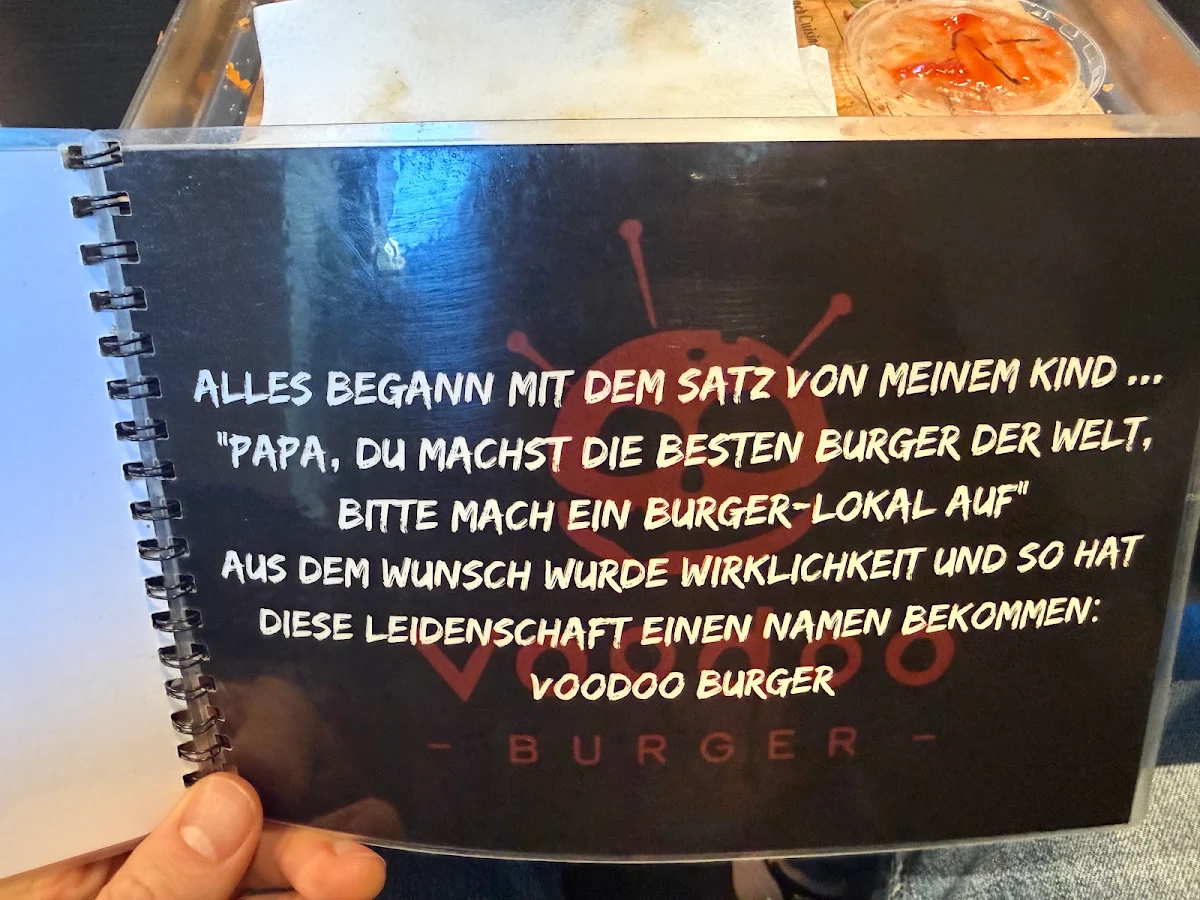 ALLES BEGANN MIT DEM SATZ VON MEINEM KIND ...
"PAPA, DU MACHST DIE BESTEN BURGER DER WELT,
BITTE MACH EIN BURGER-LOKAL AUF"
AUS DEM WUNSCH WURDE WIRKLICHKEIT UND SO HAT
DIESE LEIDENSCHAFT EINEN NAMEN BEKOMMEN:
VOODOO BURGER
voodoo
- BURGER -